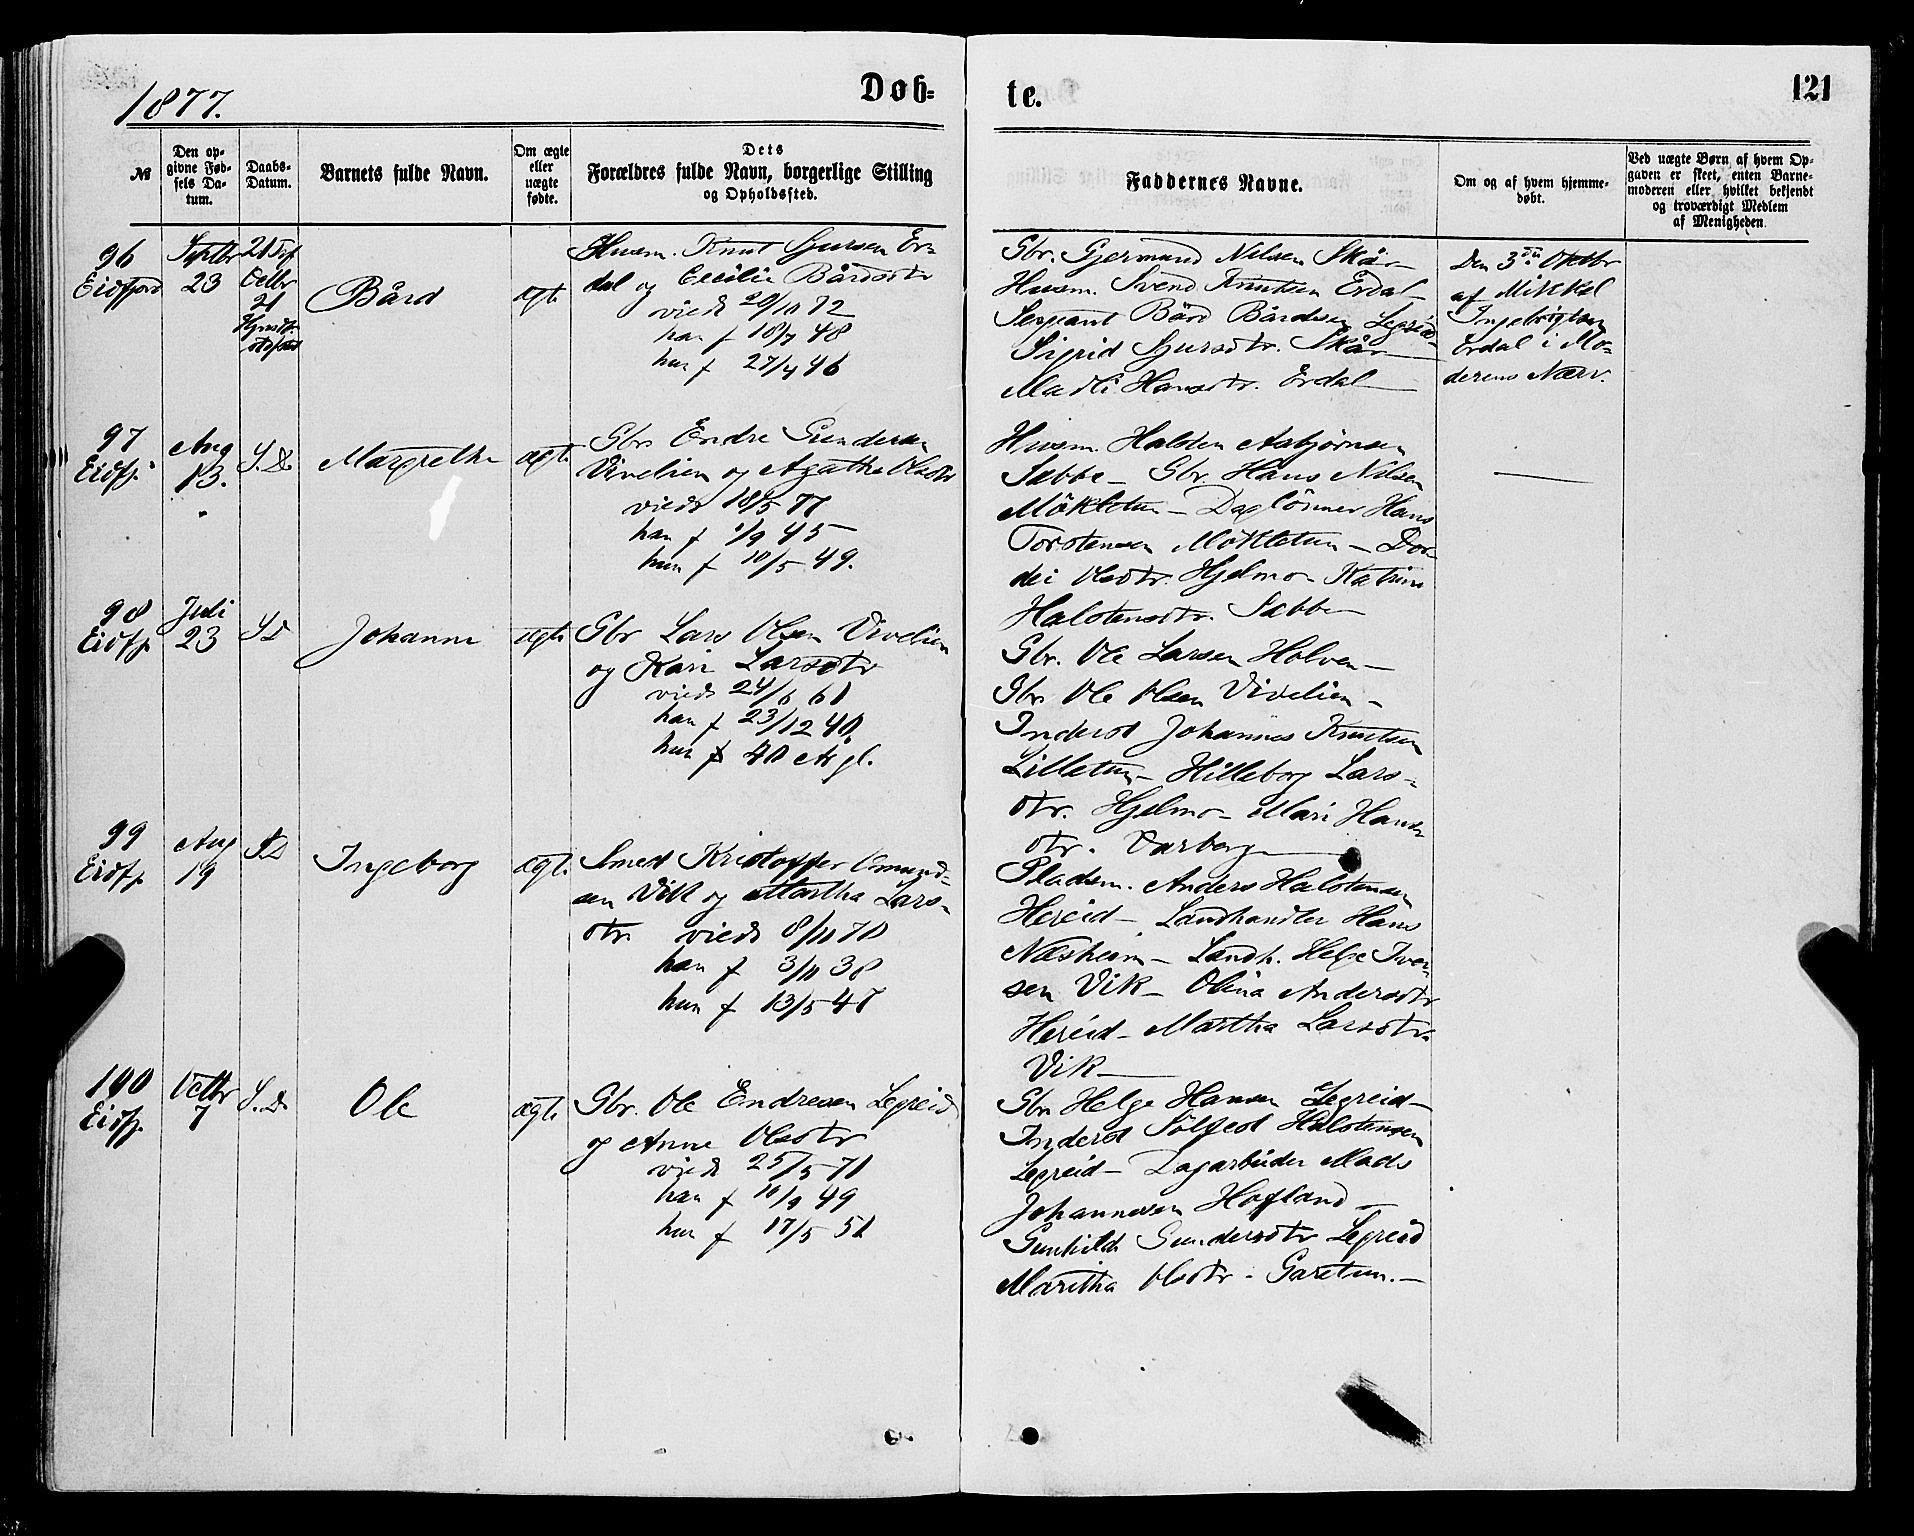 1877.
Døb-
te.
121
№
Den op-
givne Fød-
sels Da-
tum.
Daabs-
Datum.
Barnets fulde Navn.
Om ægte
eller
uægte
fødte.
Dets
Forældres fulde Navn, borgerlige Stilling
og Opholdssted.
Faddernes Navne.
Om og af hvem hjemme-
døbt.
Ved uægte Børn af hvem Op-
gaven er skeet, enten Barne-
moderen eller hvilket bekjendt
og troværdigt Medlem
af Menigheden.
96
Eidfjord
Septbr
23
Octbr
21
Bård
ægt.
Husm. Knut Sjursen Er-
dal og Cecilie Bårdsdtr
viede 20/10 72
han f 18/7 48
hun f 27/4 46
Gbr. Gjermund Nilsen Skår
Husm. Svend Knutsen Erdal
Sergeant Bård Bårdsen Legreid
Sigrid Sjursdtr. Skår
Madli Hansdtr. Erdal
Den 3die Oktbr
af Mikkel
Ingebrigtsen
Erdal i Mo-
derens Nærv.
97
Eidfj.
Aug
13.
S. D.
Margrethe
ægt.
Gbr Endre Gundersen
Vivelien og Agatha Olsdtr
viede 18/5 77
han f 1/9 45
hun f 10/5 49.
Husm. Halsten Asbjørnsen
Sæbbe - Gbr. Hans Nilsen
Møkletun - Daglönner Hans
Torstensen Møkletun - Dor-
dei Olsdtr. Hjelmo - Katrine
Halstensdtr. Sæbbe
98
Eidfj.
Juli
23
S D
Johanne
ægt.
Gbr Lars Olsen Vivelien
og Kari Larsdtr
viede 24/6 61
han f 23/12 40
hun f 40 År gl.
Gbr. Ole Larsen Holven -
Gbr Ole Olsen Vivelien -
Inderst Johannes Knutsen
Lilletun - Hilleborg Lars-
dtr. Hjelmo - Mari Hans-
dtr. Varberg
99
Eidfj.
Aug
19
S. D
Ingeborg
ægt.
Smed Kristoffer Omund-
sen Vik og Martha Lars-
dtr viede 8/10 70
han f 3/11 38
hun f 13/5 47
Pladsm. Anders Halstensen
Hereid - Landhandler Hans
Næsheim - Landh. Helge Iver-
sen Vik - Olina Andersdtr
Hereid - Martha Larsdtr.
Vik
100
Eidfj.
Octbr
7
S. D.
Ole
ægt.
Gbr. Ole Endresen Legreid
og Anne Olsdtr
viede 25/5 71
han f 10/9 49
hun f 17/5 51
Gbr Helge Hansen Legreid -
Inderst Sölfest Halstensen
Legreid - Dagarbeider Mads
Johannesen Hofland
Gunhild Gundersdtr Legreid
Maritha Olsdtr - Garetun. -